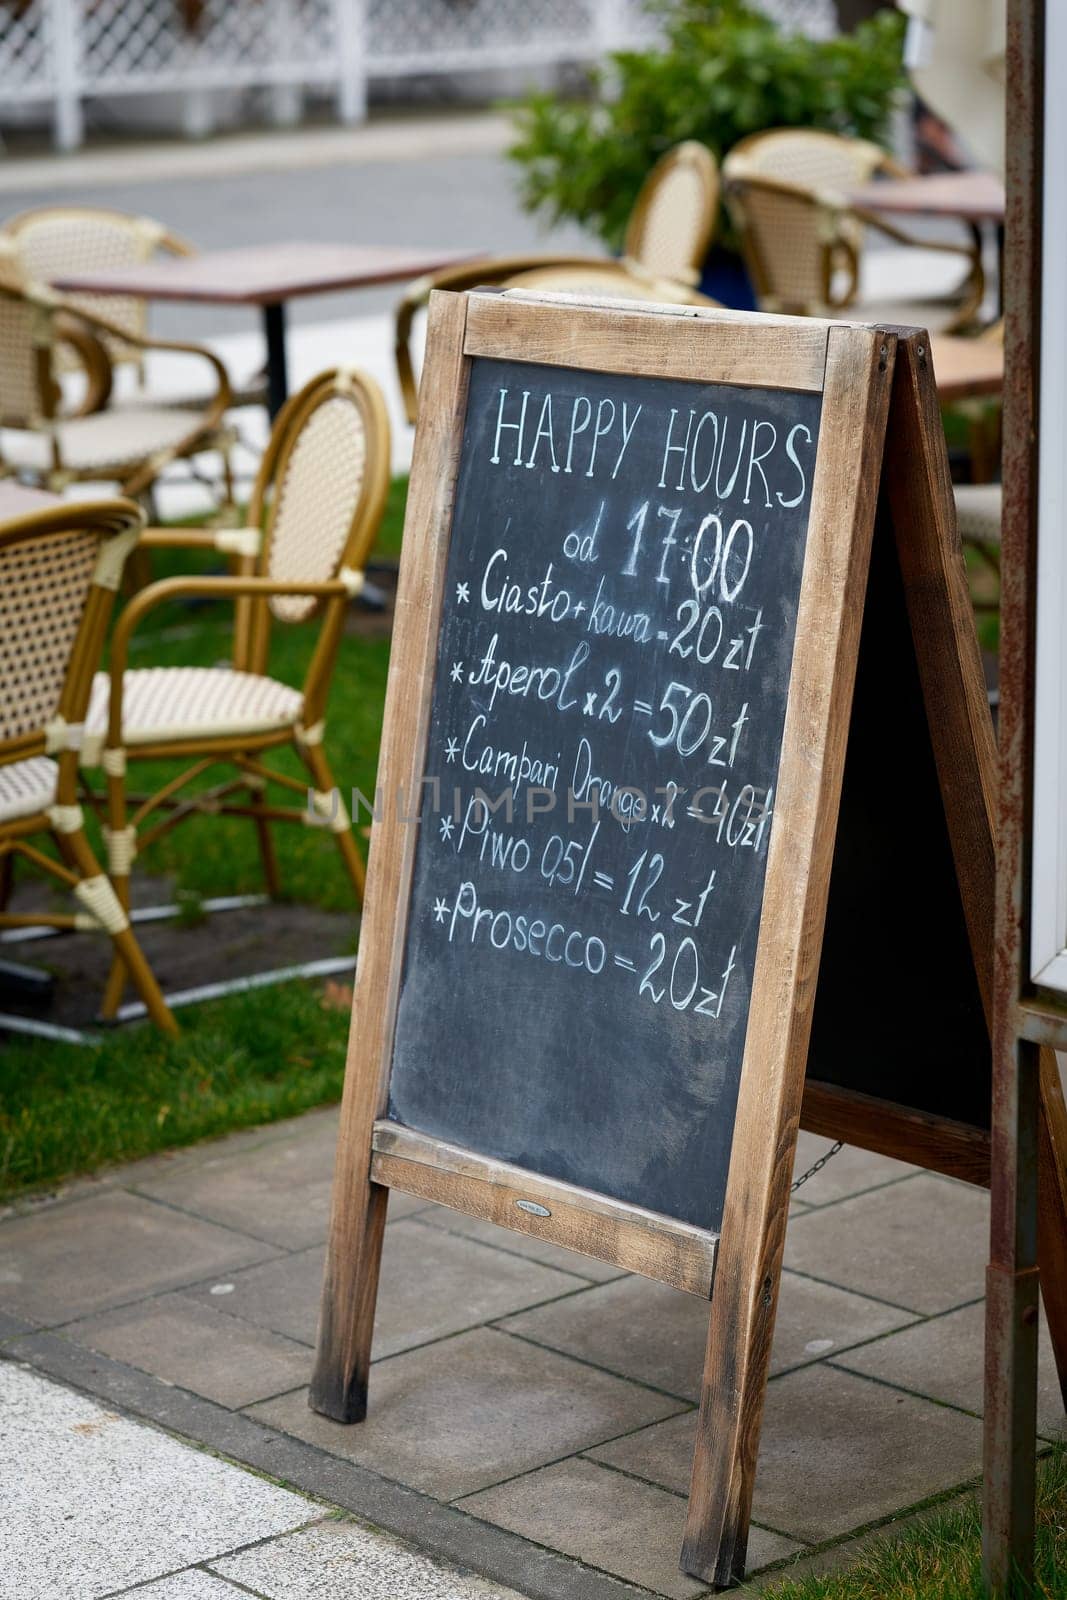 HAPPY HOURS
od 17:00
* Ciasto + kawa = 20 zł
* Aperol x 2 = 50 zł
* Campari Orange x 2 = 40 zł
* Piwo 0,5l = 12 zł
* Prosecco = 20 zł
UNLIMPHOTOS